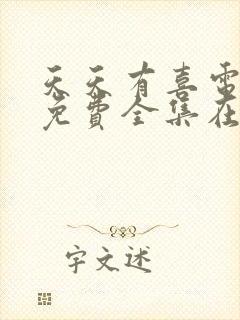 天天有喜電
免費全集在
宇文述